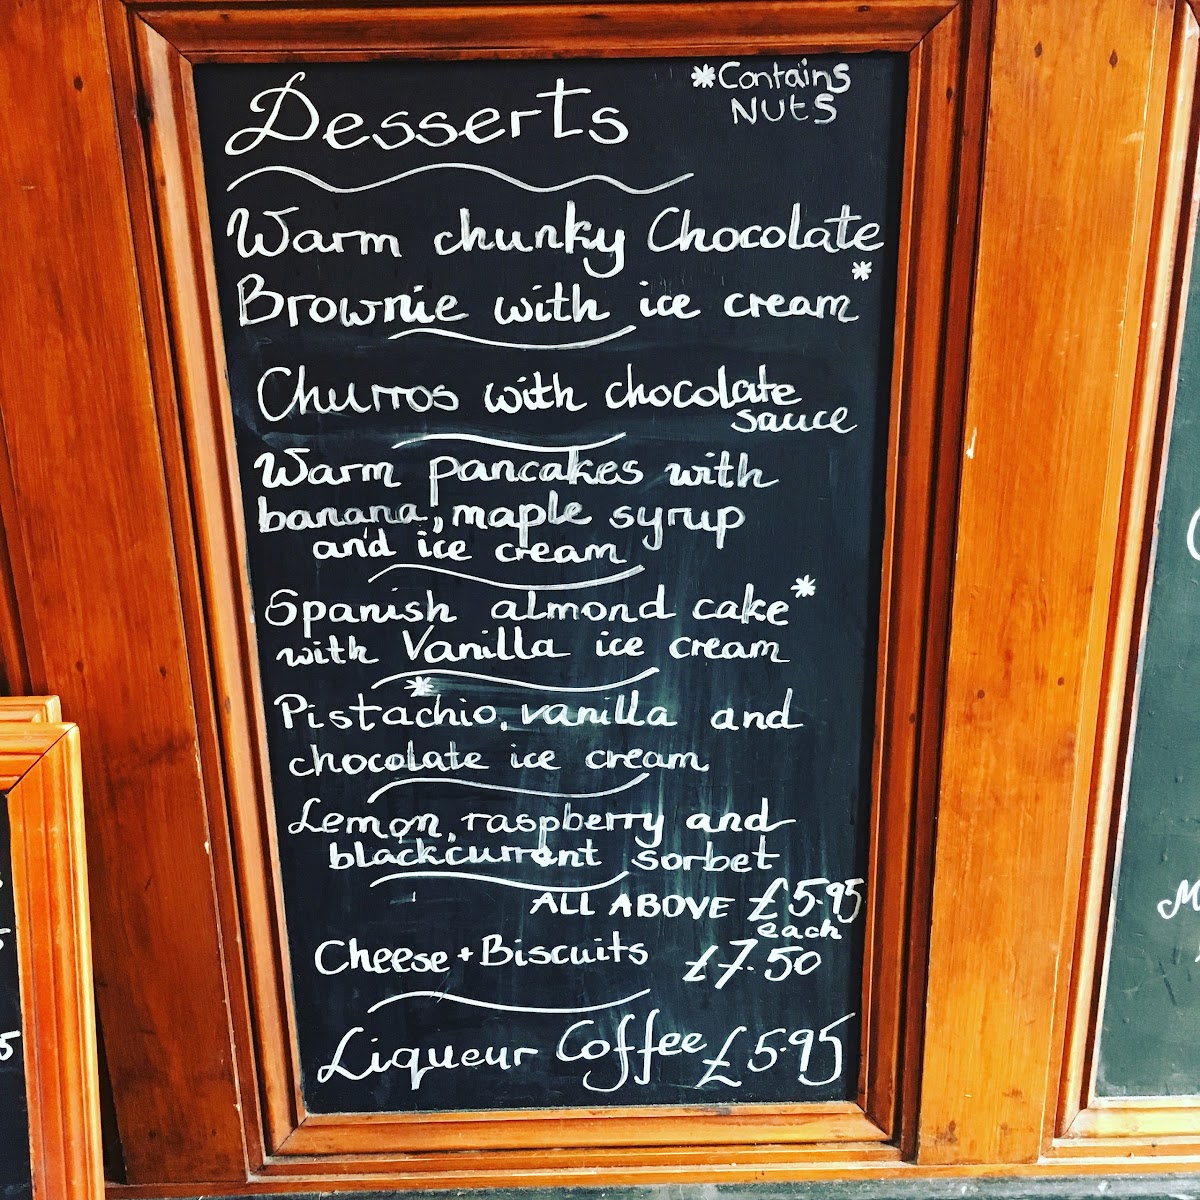 Desserts
*Contains
NUtS
Warm chunky Chocolate
Brownie with ice cream*
Churros with chocolate
sauce
Warm pancakes with
banana, maple syrup
and ice cream
Spanish almond cake*
with Vanilla ice cream
Pistachio*, vanilla and
chocolate ice cream
Lemon, raspberry and
blackcurrant sorbet
ALL ABOVE £5.95
each
Cheese + Biscuits £7.50
Liqueur Coffee £5.95